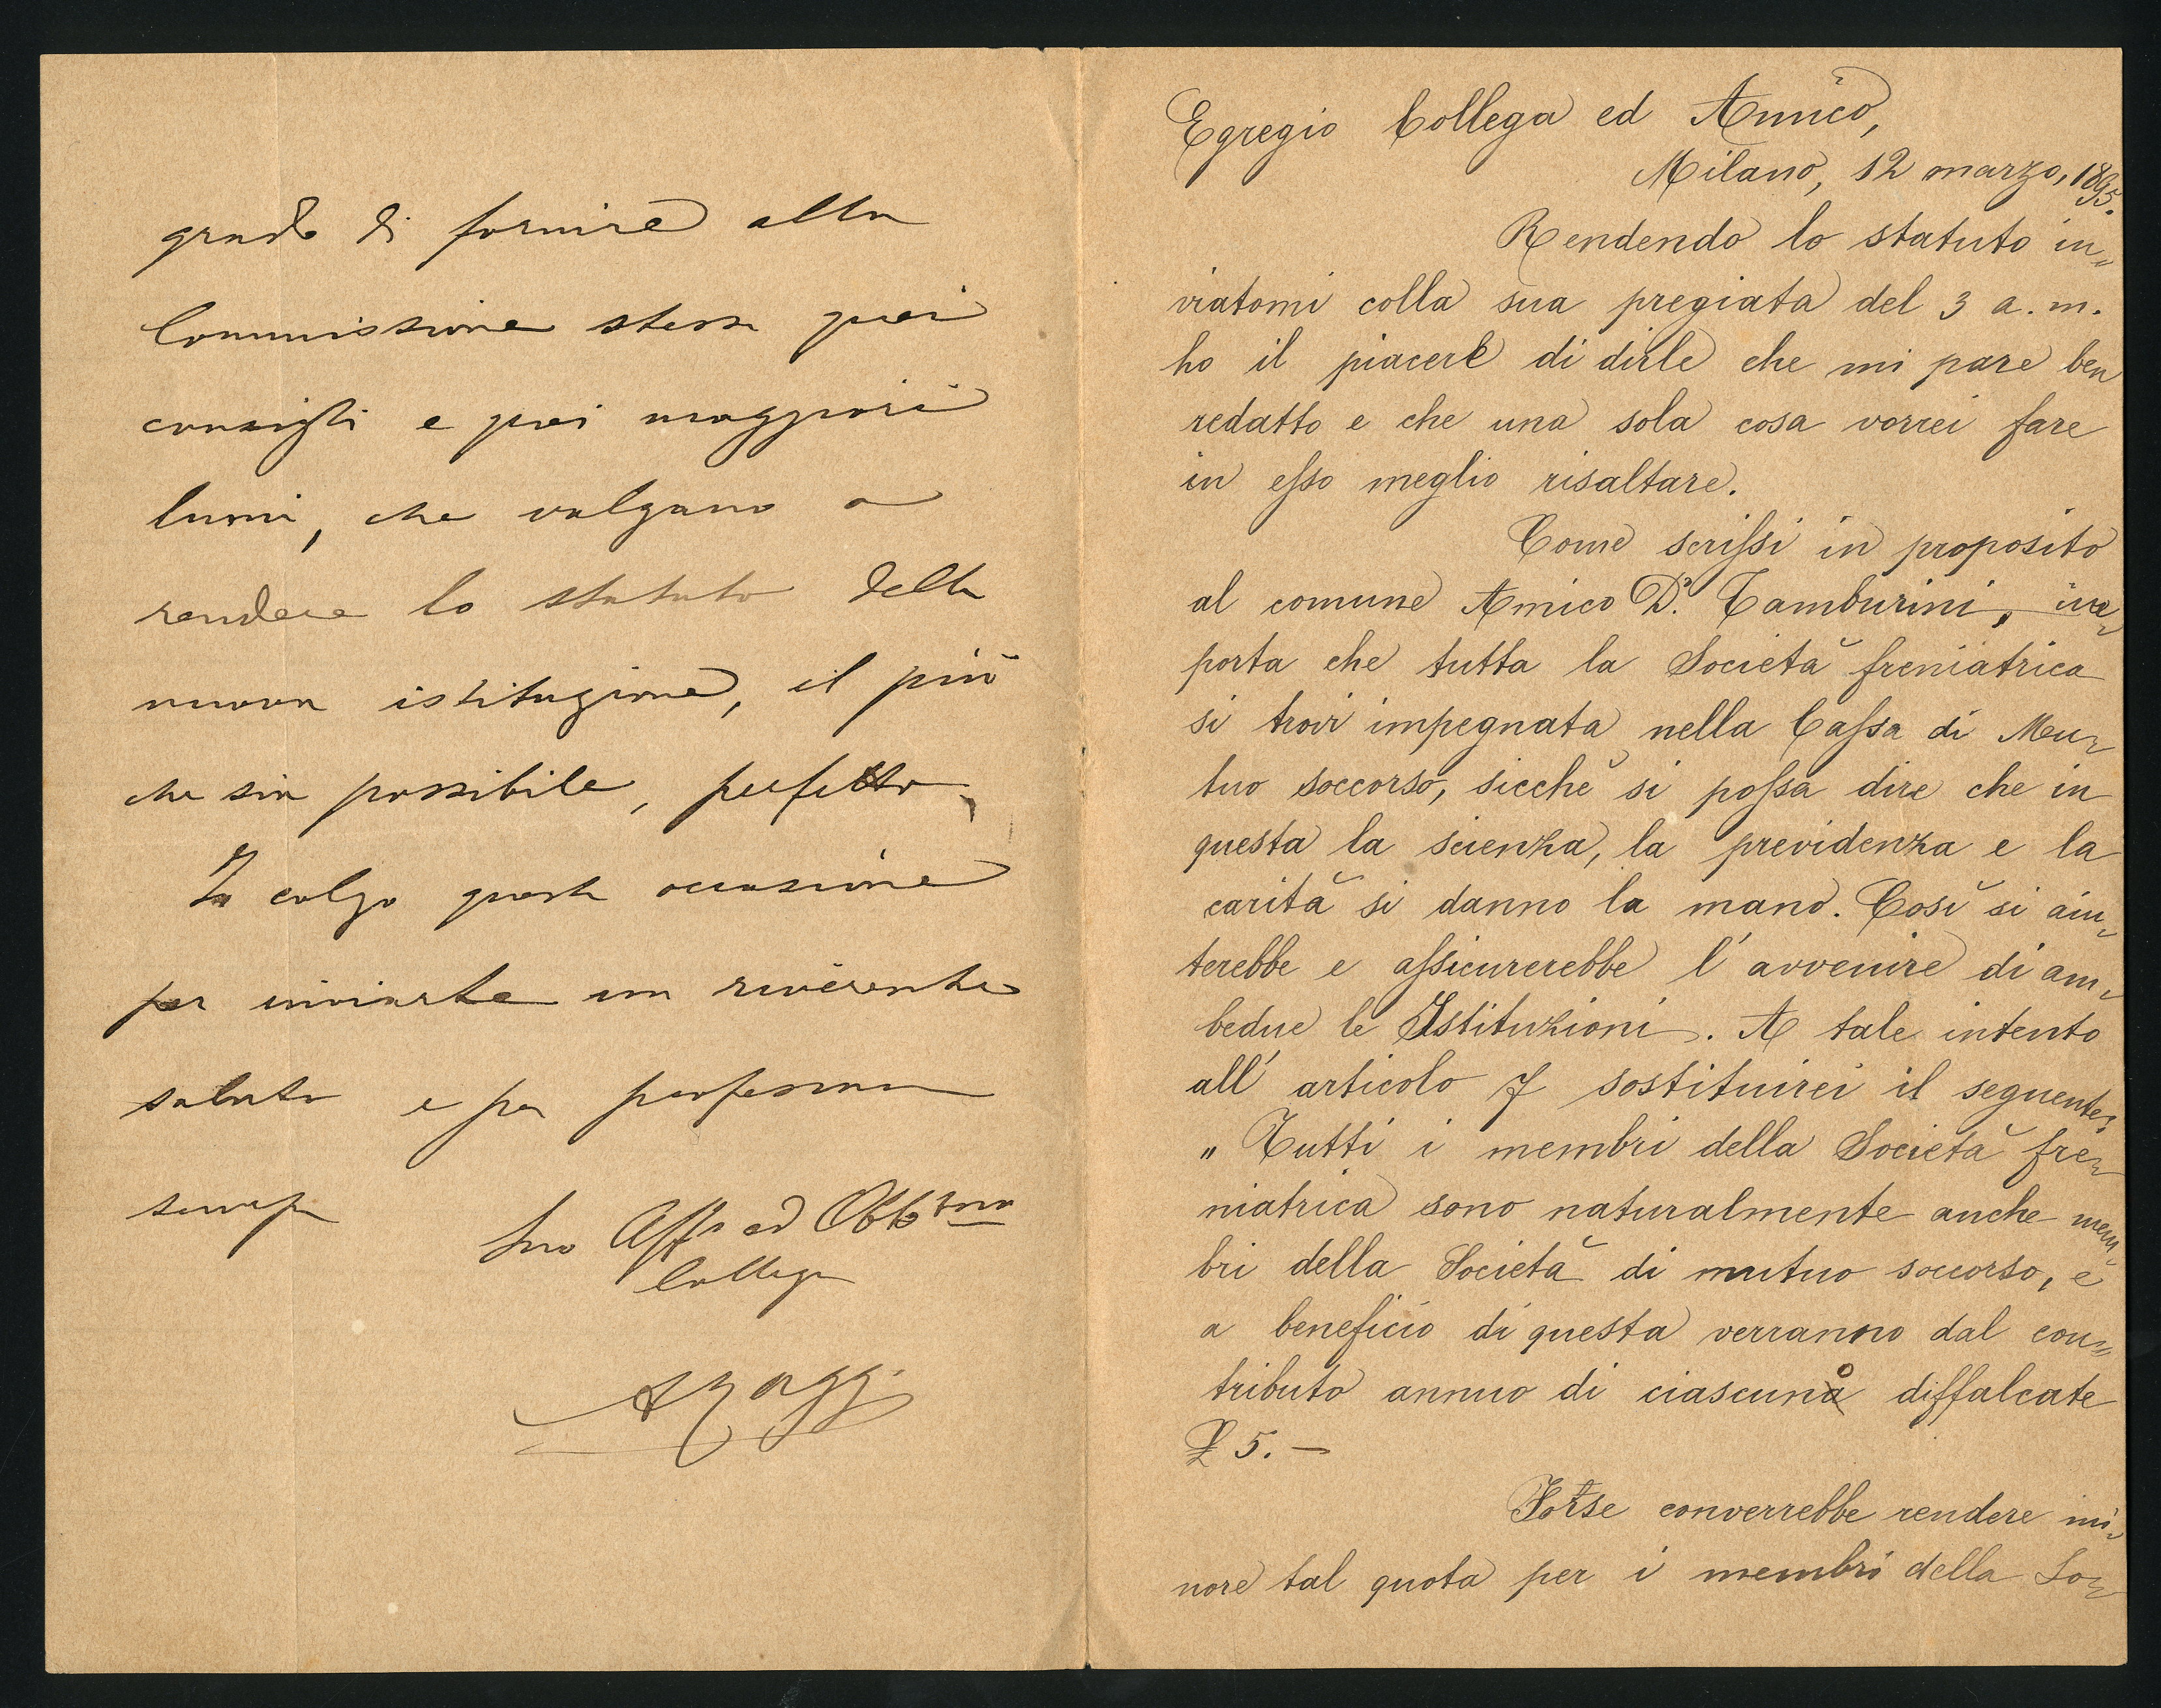 grado di fornire alla
Commissione stessa quei
consigli e quei maggiori
lumi, che valgano a
rendere lo statuto della
nuova istituzione, il più
che sia possibile, perfetto.
Io colgo questa occasione
per inviarle un riverente
saluto e per professarmi
sempre
Suo Aff° ed Obb.mo
Collega
Egregio Collega ed Amico,
Milano, 12 marzo, 1895.
Rendendo lo statuto in„
viatomi colla sua pregiata del 3 a. m.
ho il piacere di dirle che mi pare ben
redatto e che una sola cosa vorrei fare
in esso meglio risaltare.
Come scrissi in proposito
al comune Amico Dr. Tamburini,
porta che tutta la Società freniatrica
si trovi impegnata nella Cassa di Mu-
tuo soccorso, sicchè si possa dire che in
questa la scienza, la previdenza e la
carità si danno la mano. Così si aiu-
terebbe e assicurerebbe l'avvenire di am-
bedue le Istituzioni. A tale intento
all' articolo 7 sostituirei il seguente:
„ Tutti i membri della Società fre-
niatrica sono naturalmente anche mem-
bri della Società di mutuo soccorso, e
a beneficio di questa verranno dal con„
tributo annuo di ciascuno diffalcate
£ 5. —
Forse converrebbe rendere mi-
nore tal quota per i membri della So-